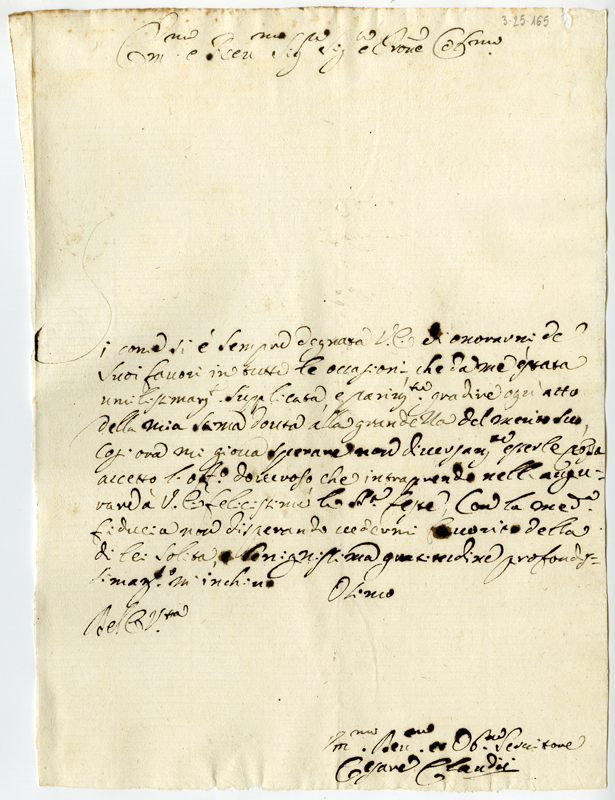 3-25-165
Em.mo e Reu.mo Sig.r Sig.r e Prone Col.mo
i come si é sempre degnata V.E. di onorarmi de
Suoi fauori in tutte le occasioni che da me é stata
umilissimam.te Supplicata, e parim.te gradire ogn'atto
della mia Seruitù douuta alla grandezza del merito Suo,
Cosi ora mi gioua Sperare non diuersam.te esserle p
accetto l'off.o doueroso che intraprendo nell'augu-
rare à V.E. felicissime le S.te feste, Con la med.a
fiducia non disperando uedermi fauorito della
di lei Solita, benignissima gratitudine profondis-
simam.te m'inchino
Osimo
Dell'E.V.ra
Um.mo Deu.mo et Ob.mo Seruitore
Cesare Claudij